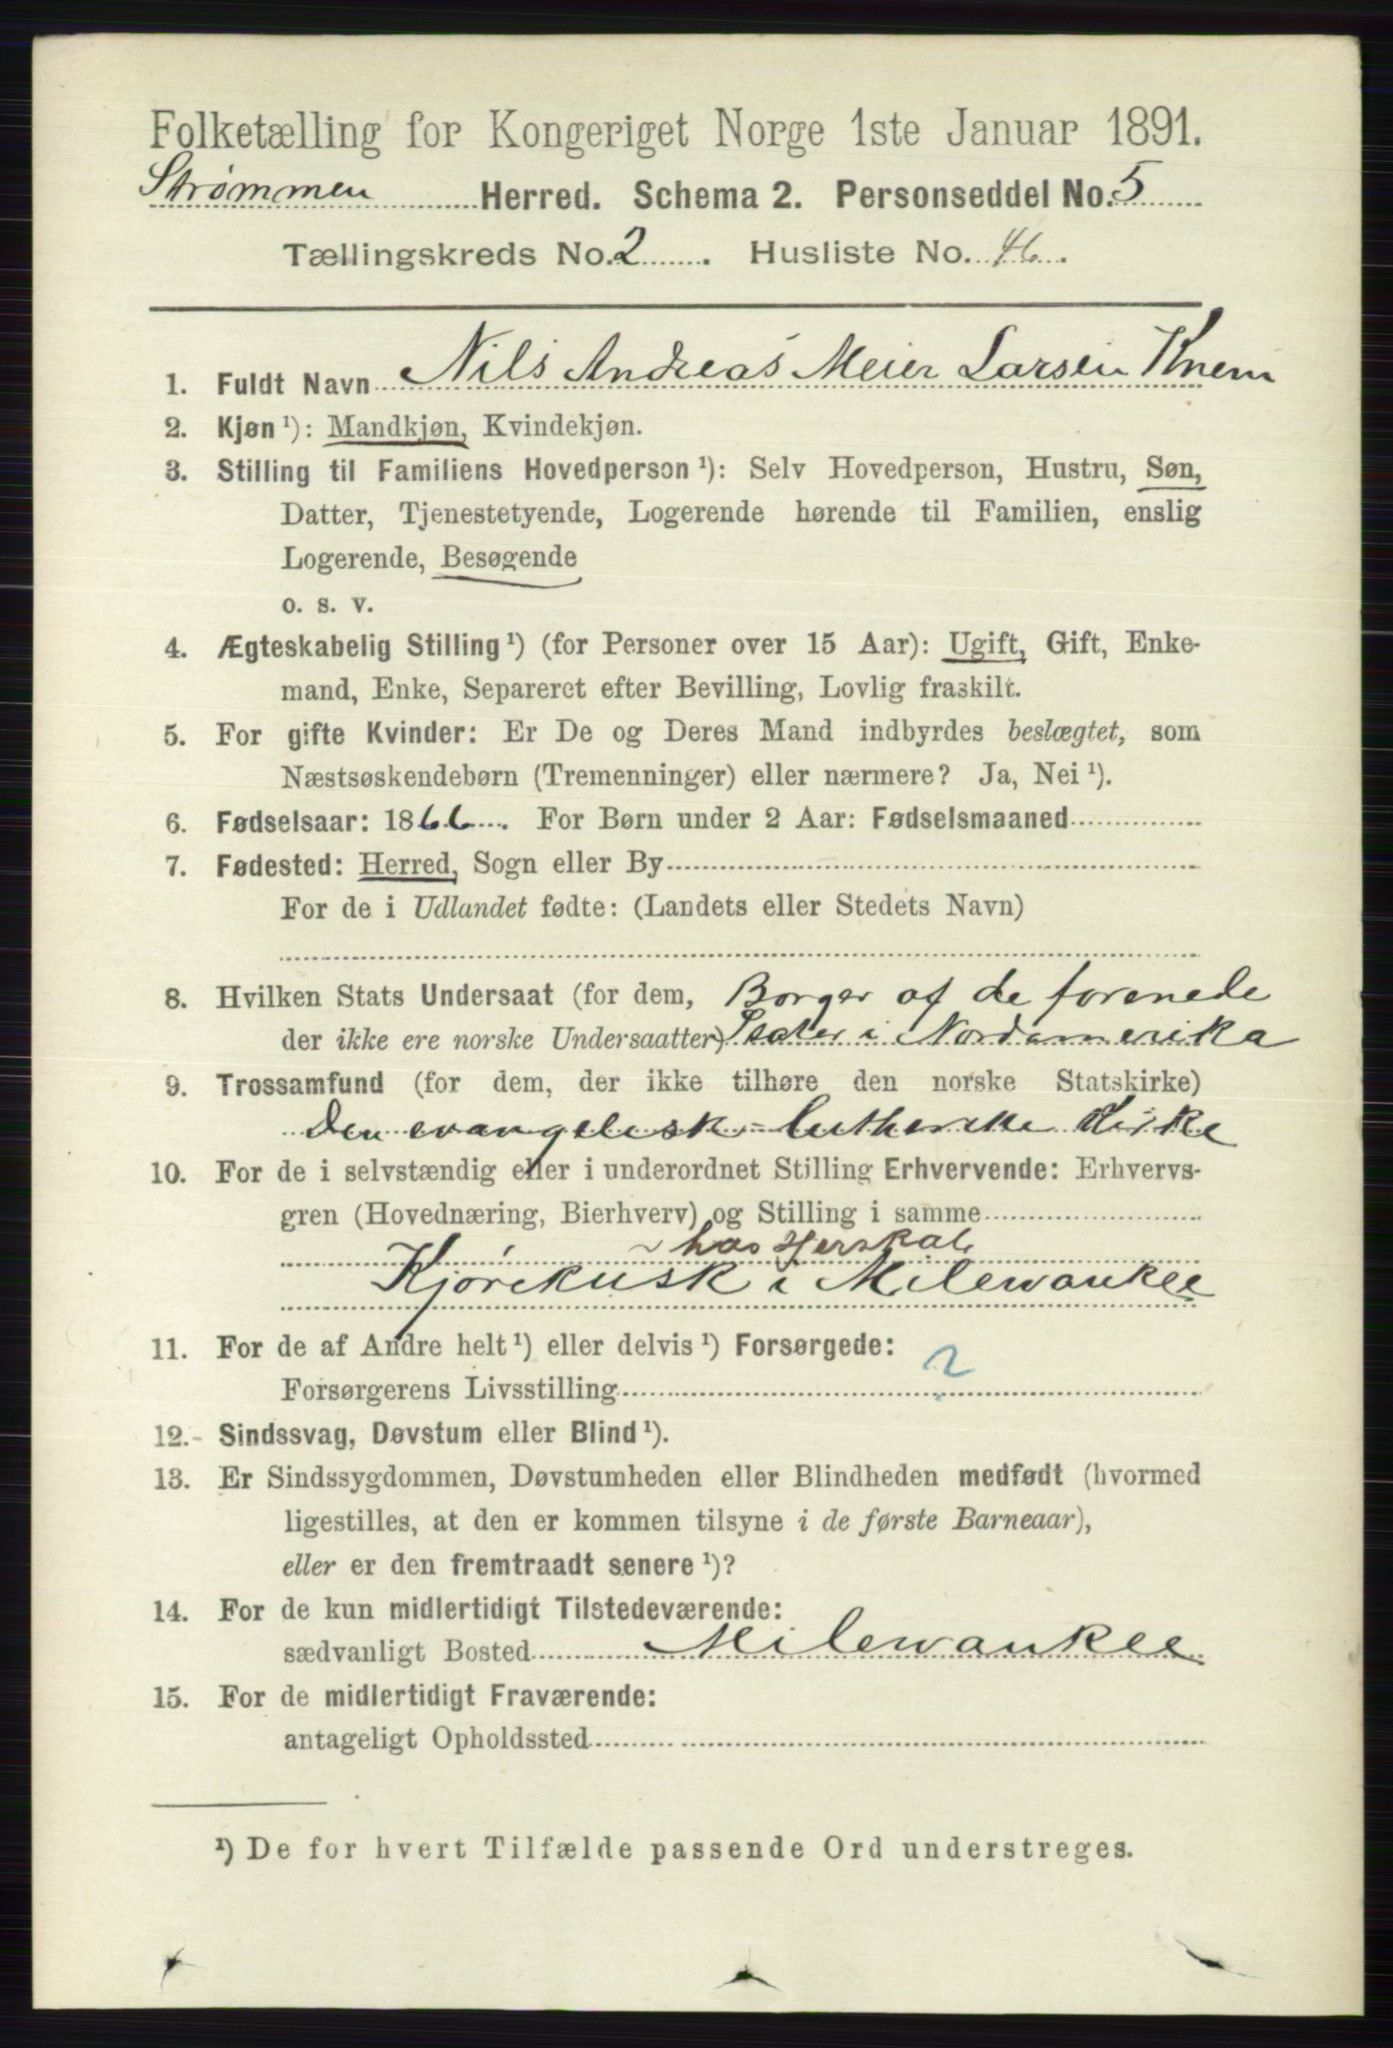 Folketælling for Kongeriget Norge 1ste Januar 1891.
Strømmen Herred. Schema 2. Personseddel No. 5
Tællingskreds No. 2. Husliste No. 46.
1. Fuldt Navn Nils Andreas Meier Larsen Knem
2. Kjøn ¹): Mandkjøn, Kvindekjøn.
3. Stilling til Familiens Hovedperson ¹): Selv Hovedperson, Hustru, Søn,
Datter, Tjenestetyende, Logerende hørende til Familien, enslig
Logerende, Besøgende
o. s. v.
4. Ægteskabelig Stilling ¹) (for Personer over 15 Aar): Ugift, Gift, Enke-
mand, Enke, Separeret efter Bevilling, Lovlig fraskilt.
5. For gifte Kvinder: Er De og Deres Mand indbyrdes beslægtet, som
Næstsøskendebørn (Tremenninger) eller nærmere? Ja, Nei ¹).
6. Fødselsaar: 1866. For Børn under 2 Aar: Fødselsmaaned
7. Fødested: Herred, Sogn eller By
For de i Udlandet fødte: (Landets eller Stedets Navn)
8. Hvilken Stats Undersaat (for dem, Borger af de forenede
der ikke ere norske Undersaatter) Stater i Nordamerika
9. Trossamfund (for dem, der ikke tilhøre den norske Statskirke)
Den evangelisk-lutherske Kirke
10. For de i selvstændig eller i underordnet Stilling Erhvervende: Erhvervs-
gren (Hovednæring, Bierhverv) og Stilling i samme
~ hos Herskab
Kjørekusk i Milewaukee
11. For de af Andre helt ¹) eller delvis ¹) Forsørgede:
2
Forsørgerens Livsstilling
12. Sindssvag, Døvstum eller Blind ¹).
13. Er Sindssygdommen, Døvstumheden eller Blindheden medfødt (hvormed
ligestilles, at den er kommen tilsyne i de første Barneaar),
eller er den fremtraadt senere ¹)?
14. For de kun midlertidigt Tilstedeværende:
sædvanligt Bosted Milewaukee
15. For de midlertidigt Fraværende:
antageligt Opholdssted
¹) De for hvert Tilfælde passende Ord understreges.